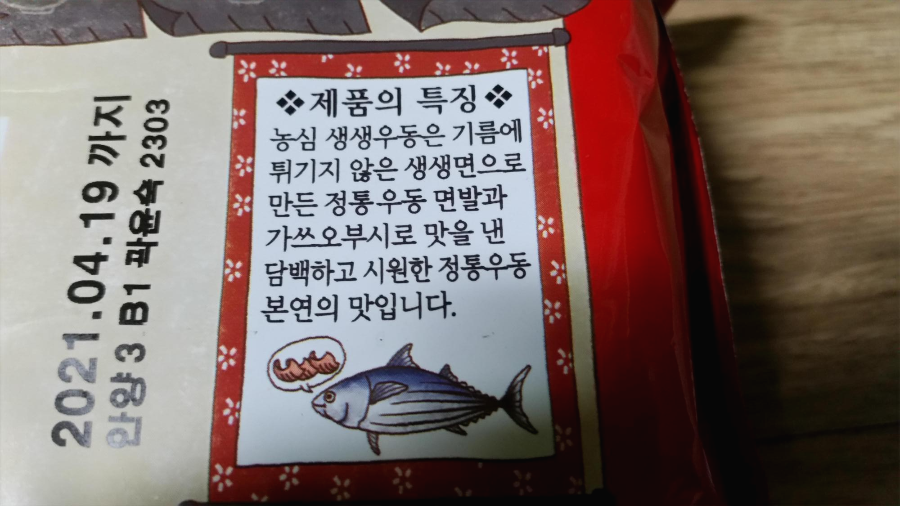 ❖제품의 특징❖
농심 생생우동은 기름에
튀기지 않은 생생면으로
만든 정통우동 면발과
가쓰오부시로 맛을 낸
담백하고 시원한 정통우동
본연의 맛입니다.
2021.04.19 까지
안양 3 B1 곽윤숙 2303